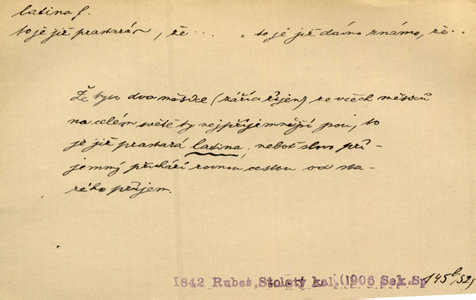 latina f.
to je již prastará, že... .. to je již dávno známo, že..
Že tyto dva měsíce (září a říjen) ze všech měsíců
na celém světě ty nejpříjemnější jsou, to
je již prastará latina, neboť slovo pří-
jemný přichází rovnou cestou od sta-
rého příjem.
1842 Rubeš, Stoletý kal. (1906 Seb. Sp 145 52,